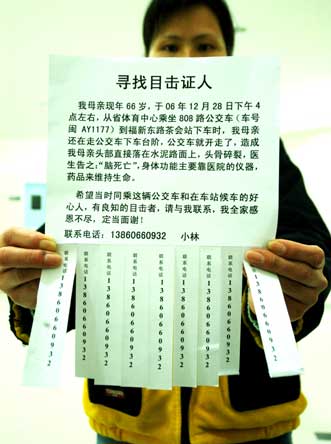 寻找目击证人
我母亲现年 66 岁，于 06 年 12 月 28 日下午 4
点左右，从省体育中心乘坐 808 路公交车（车号
闽 AY1177）到福新东路茶会站下车时，我母亲
还在走公交车下车台阶，公交车就开走了，造成
我母亲头部直接落在水泥路面上，头骨碎裂，医
生告之：“脑死亡”，身体功能主要靠医院的仪器，
药品来维持生命。
希望当时同乘这辆公交车和在车站候车的好
心人，有良知的目击者，请与我联系，我全家感
恩不尽，定当面谢！
联系电话：13860660932 小林
联系电话 13860660932
联系电话 13860660932
联系电话 13860660932
联系电话 13860660932
联系电话 13860660932
联系电话 13860660932
联系电话 13860660932
联系电话 13860660932